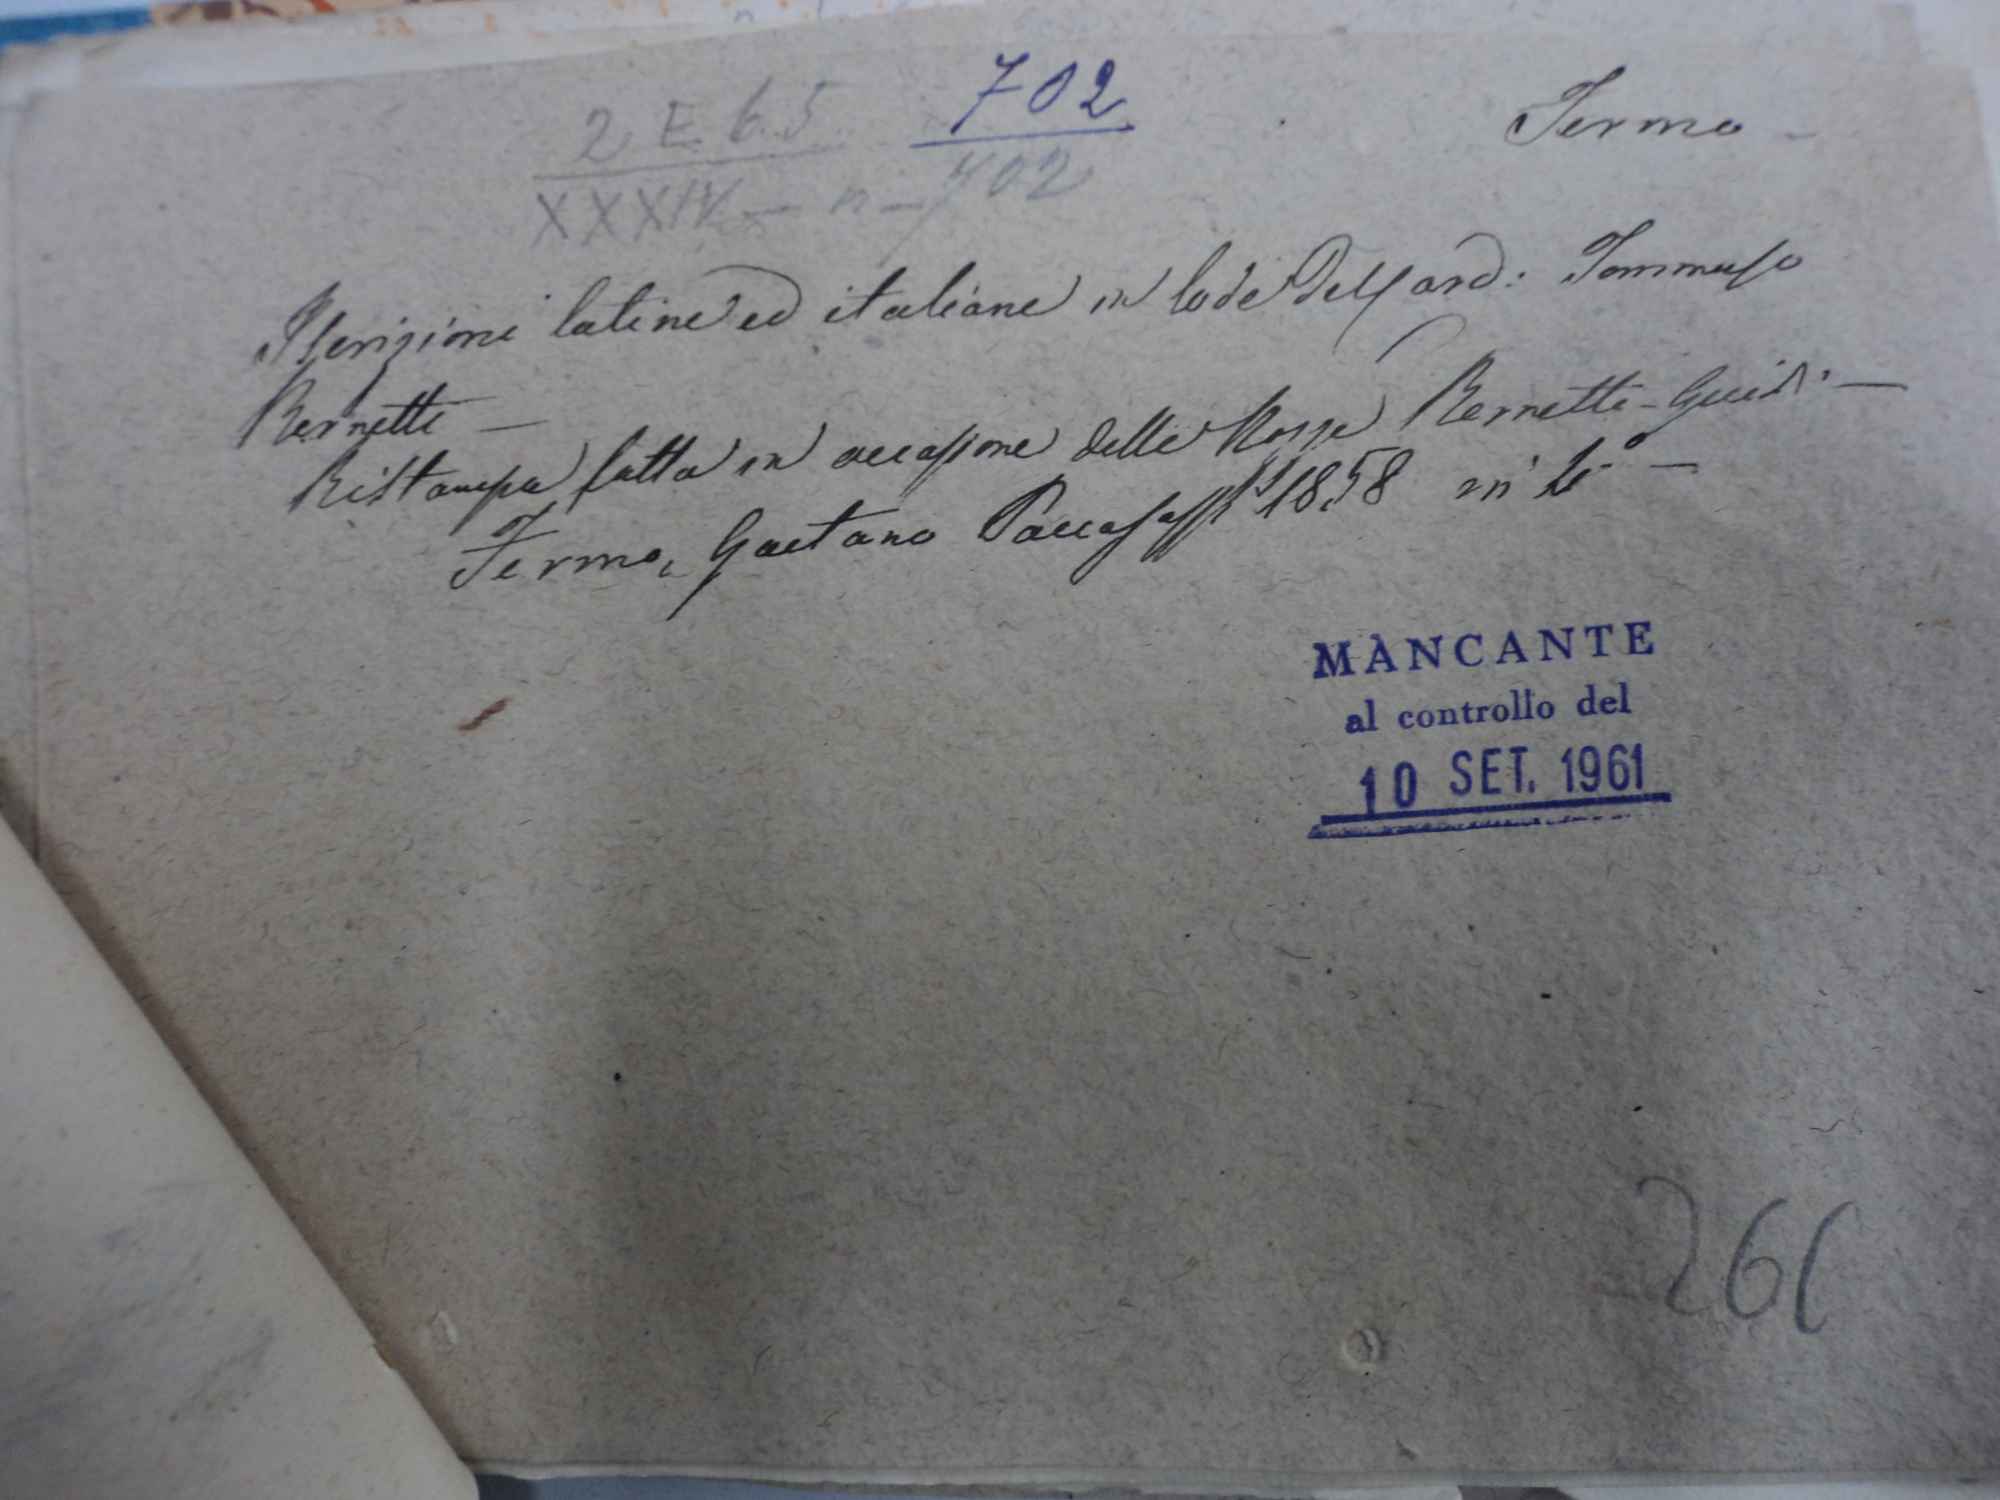 2 E 6.5 702 Fermo -
XXXIV - n - 702
Iscrizioni latine ed italiane in lode del Card: Tommaso
Bernetti —
Ristampa fatta in occasione delle Nozze Bernetti - Guidi —
Fermo, Gaetano Paccasassi 1858 in 4° —
MANCANTE
al controllo del
10 SET. 1961